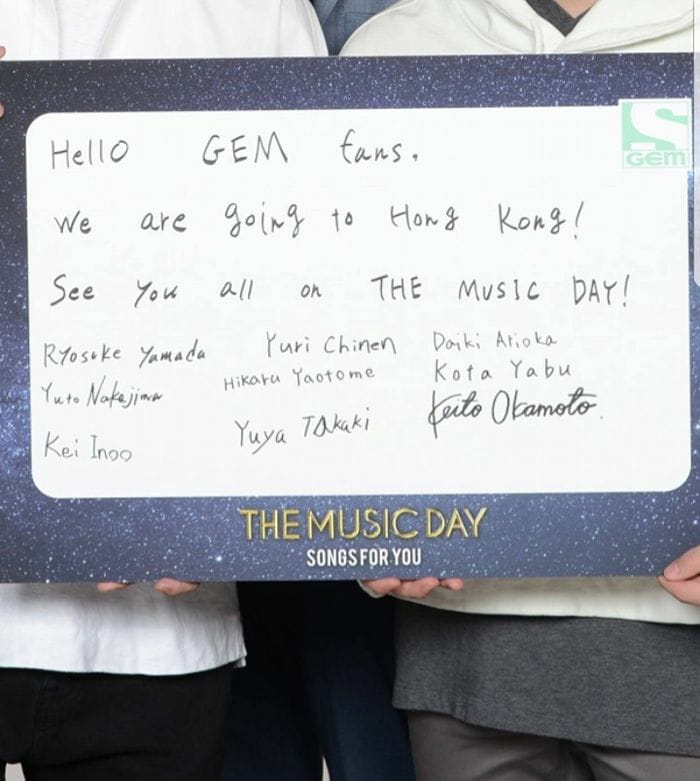 S
GEM
Hello GEM fans.
We are going to Hong Kong!
See you all on THE MUSIC DAY!
Ryosuke Yamada Yuri Chinen Daiki Arioka
Yuto Nakajima Hikaru Yaotome Kota Yabu
Kei Inoo Yuya TAkaki Keito Okamoto.
THE MUSIC DAY
SONGS FOR YOU